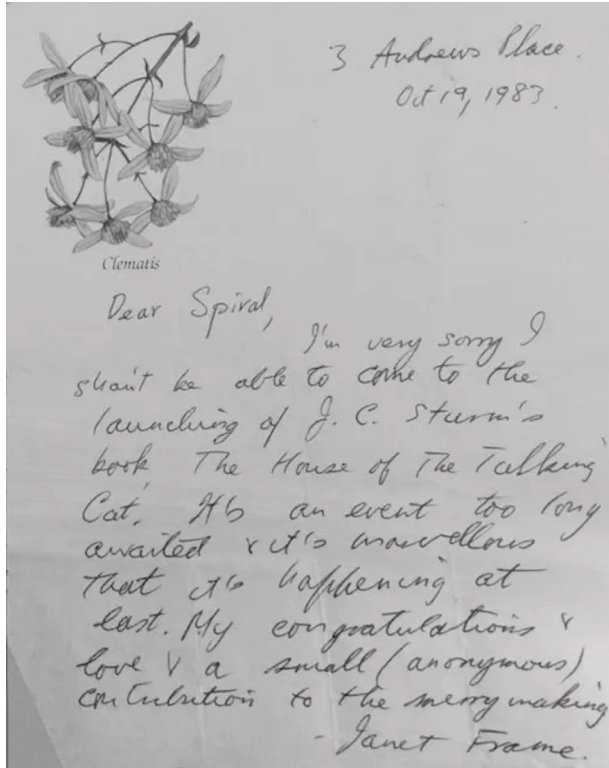 3 Andrews Place.
Oct 19, 1983.
Clematis
Dear Spiral,
I'm very sorry I
shan't be able to come to the
launching of J. C. Sturm's
book, The House of The Talking
Cat. It's an event too long
awaited & it's marvellous
that it's happening at
last. My congratulations &
love & a small (anonymous)
contribution to the merrymaking
- Janet Frame.